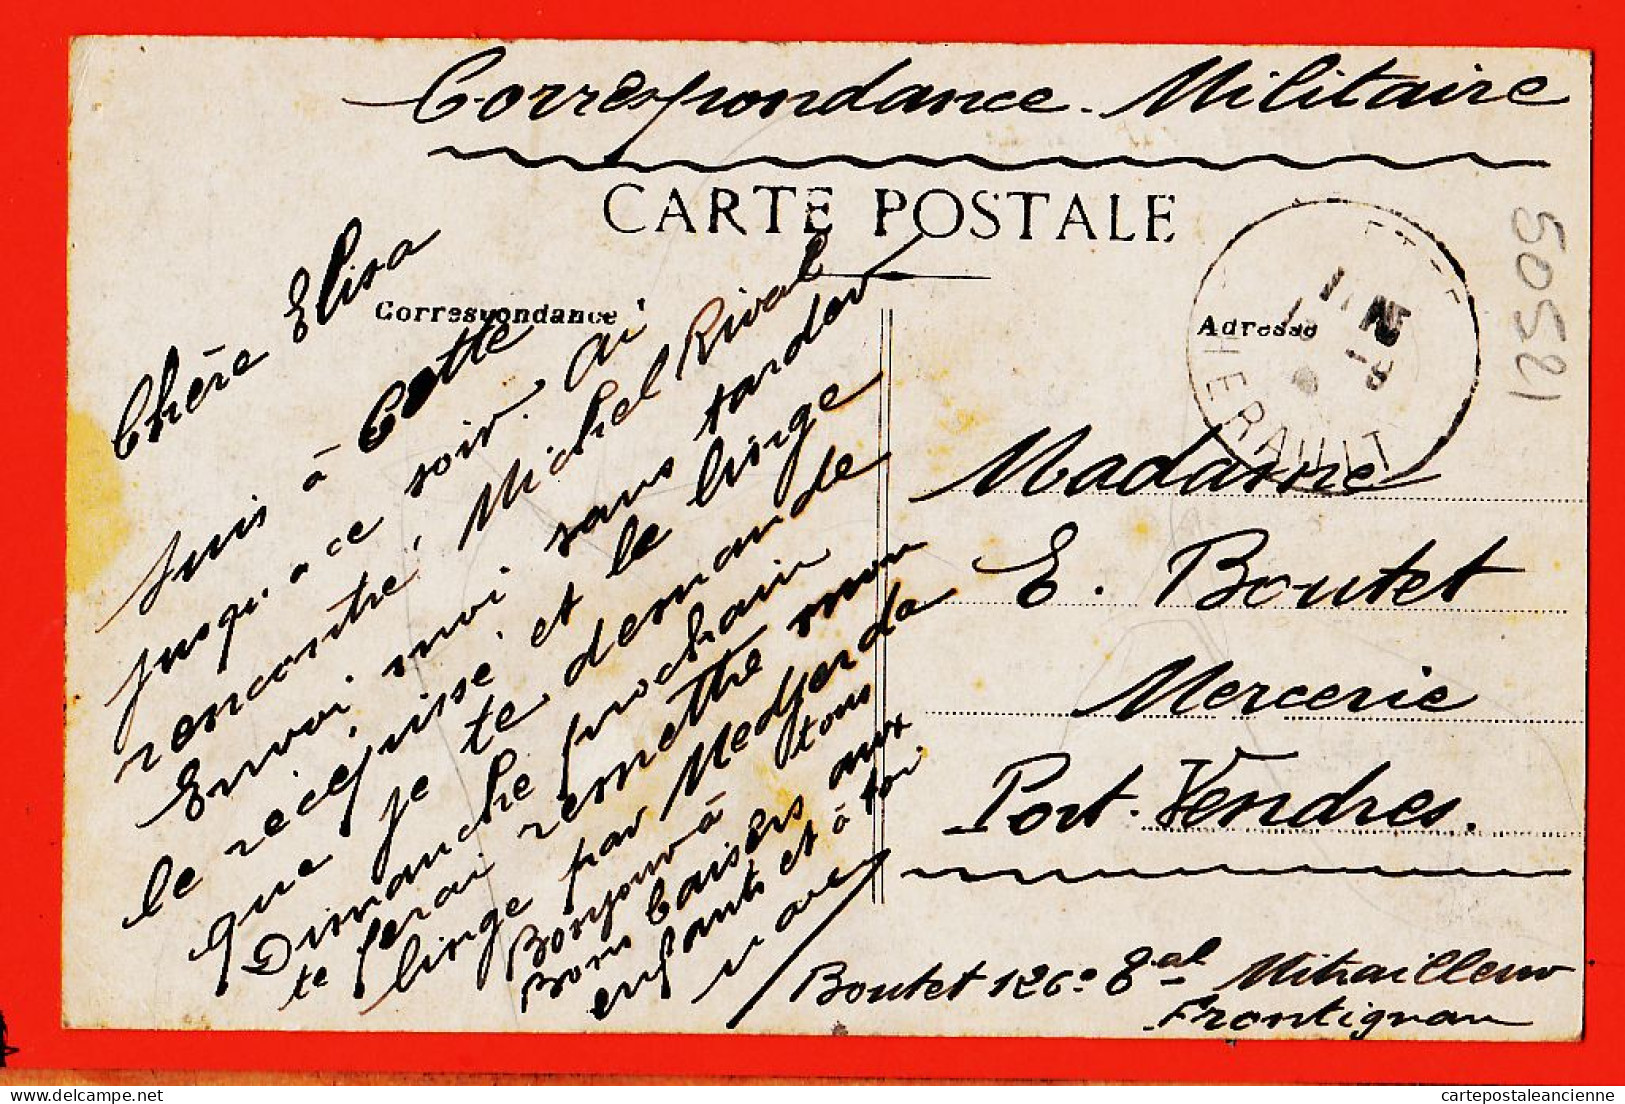 Correspondance Militaire
CARTE POSTALE
Correspondance
Adresse
HERAULT
50521
Chère Elisa
Suis à Cette
jusqu'a ce soir. ai
rencontré, Michel Rival
Envoi, moi sans tarder
le recepissé et le linge
que je te demande
Dimanche prochain
te ferai remettre mon
linge par Medjerda
Bonjour à tous
Bons baisers aux
enfants et à toi
Madame
E. Boutet
Mercerie
Port-Vendres.
Boutet 126e Eal Mitrailleur
Frontignan
cartepostaleancienne
www.cartepostaleancienne.com